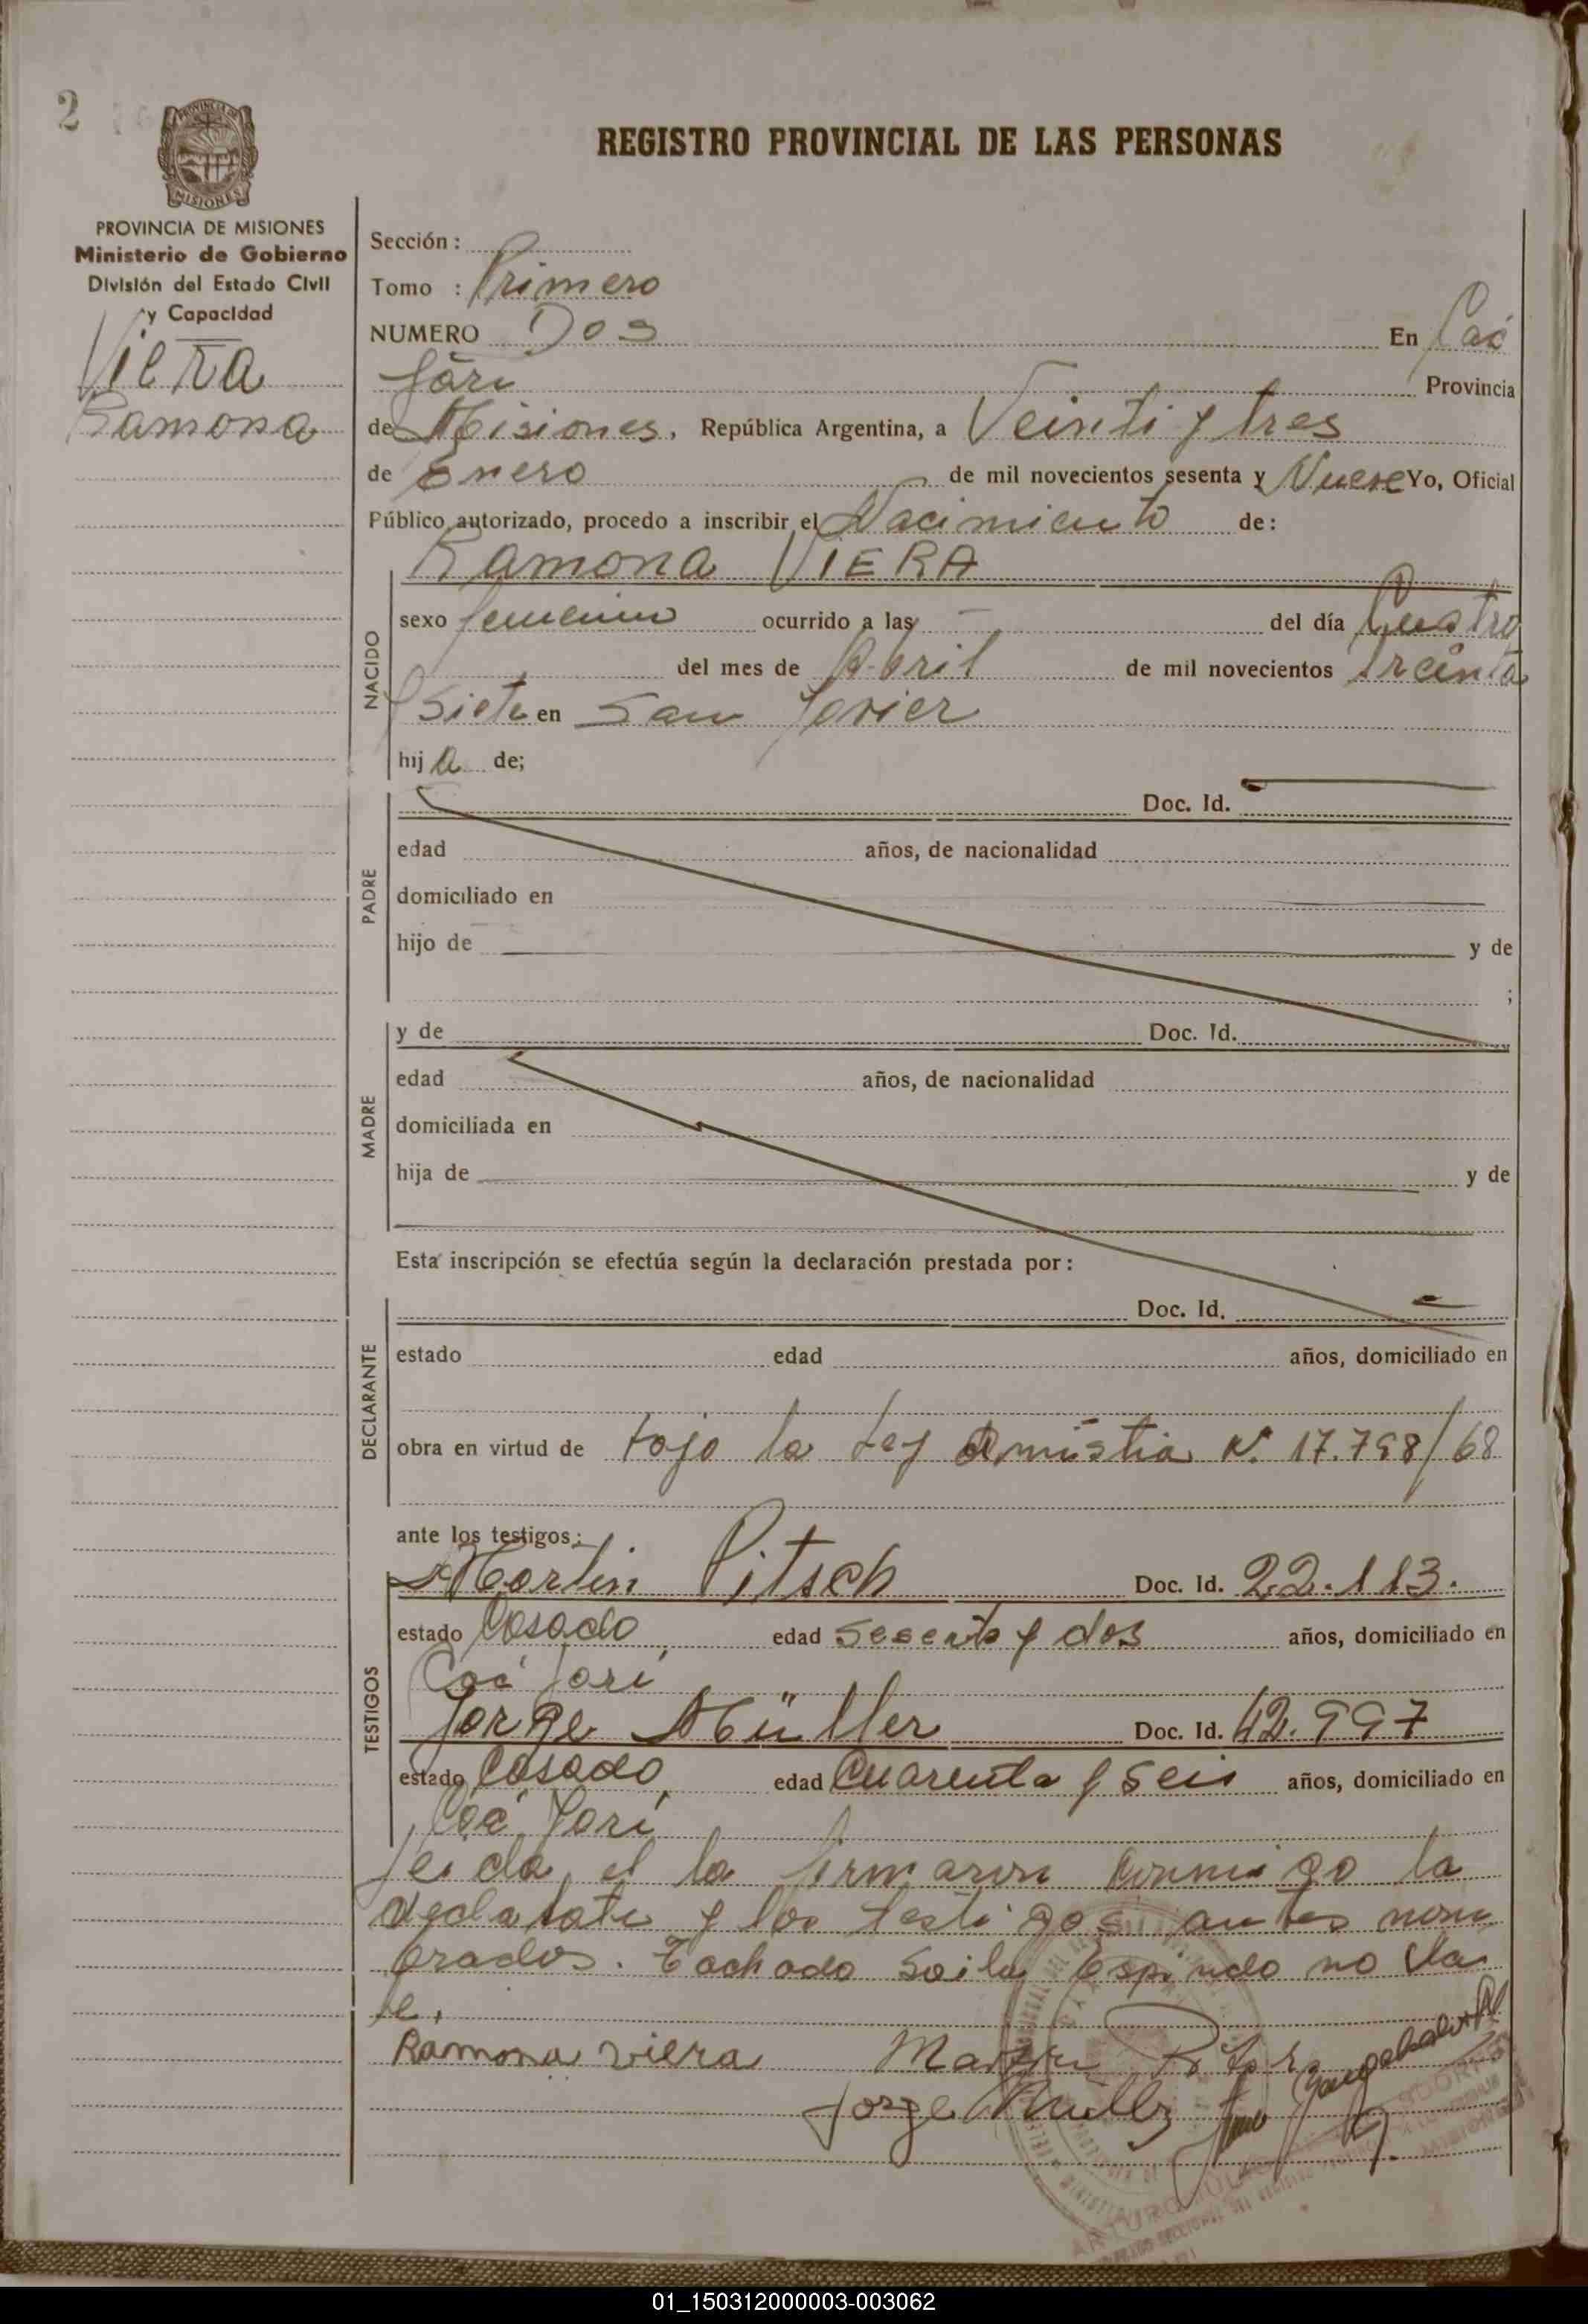 2
REGISTRO PROVINCIAL DE LAS PERSONAS
PROVINCIA DE
MISIONES
PROVINCIA DE MISIONES
Ministerio de Gobierno
División del Estado Civil
y Capacidad
Viera
Ramona
Sección:
Tomo : Primero
NUMERO Dos En Caá
Yari Provincia
de Misiones. República Argentina, a Veinti y tres
de Enero de mil novecientos sesenta y Nueve Yo, Oficial
Público autorizado, procedo a inscribir el Nacimiento de:
Ramona VIERA
NACIDO
sexo femenino ocurrido a las - del día Cuatro
del mes de Abril de mil novecientos treinta
y Siete en San Javier
hij a de;
PADRE
Doc. Id.
edad años, de nacionalidad
domiciliado en
hijo de y de
;
MADRE
y de Doc. Id.
edad años, de nacionalidad
domiciliada en
hija de y de
Esta inscripción se efectúa según la declaración prestada por:
DECLARANTE
Doc. Id.
estado edad años, domiciliado en
obra en virtud de bajo la Ley Amistia N. 17.798/68
ante los testigos:
TESTIGOS
Martin Pitsch Doc. Id. 22.113.
estado Casado edad Sesenta y dos años, domiciliado en
Caá Yari
Jorge Müller Doc. Id. 42.997
estado Casado edad Cuarenta y Seis años, domiciliado en
Caá Yari
Leida el la firmaron conmigo la
y los testigos antes nom
brados. Tachado no Va
le.
Ramona viera Martin
Jorge Müller
ARTURO
01_150312000003-003062